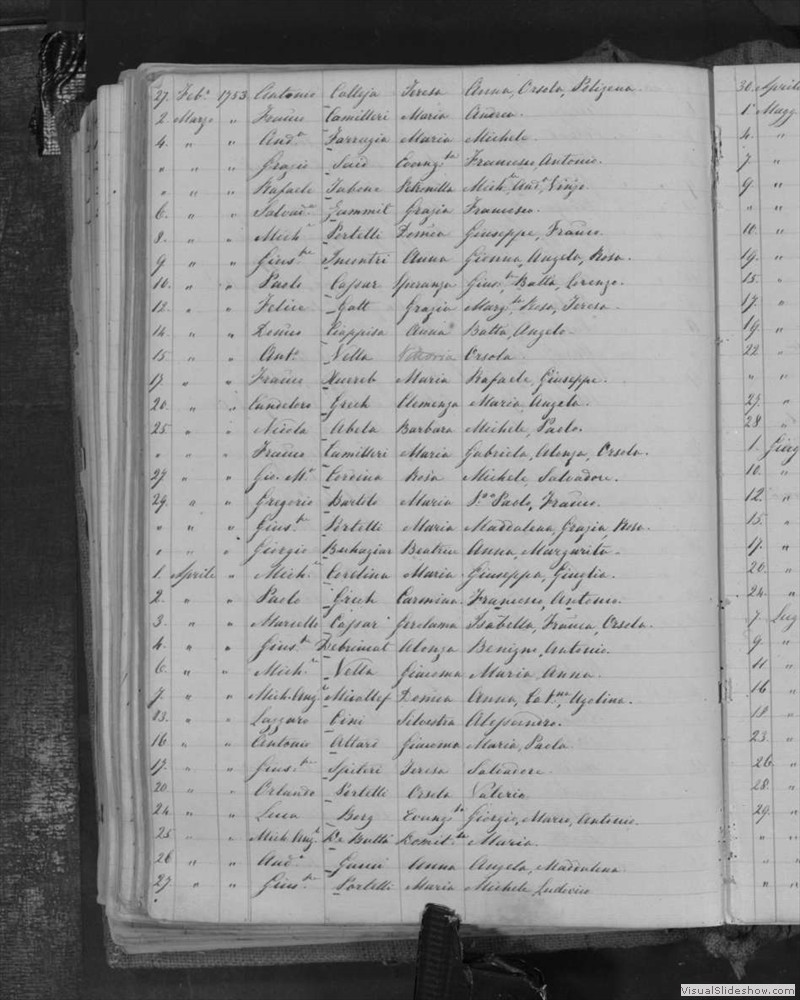 27. Feb.o 1753 Antonio Calleja Teresa Anna, Orsola, Poligena.
2. Marzo " Franco Camilleri Maria Andrea
4. " " And.a Farrugia Maria Michele.
" " " Grazio Said Evang.ta Francesco, Antonio.
" " " Rafaele Tabone Petronilla Mich.e, And.a
6. " " Salvad.e Zammit Grazia Francesco.
8. " " Mich.e Portelli Domica Giuseppe, Franco.
9 " " Gius.pe Incontri Anna Gionna, Angela, Rosa.
10. " " Paolo Cassar Speranza Gius.e, Batta, Lorenzo.
12. " " Felice Gatt Grazia Marg.ta, Rosa, Teresa.
14. " " Ciappisa Anna Batta, Angelo
15 " " Ant.o Vella Vittoria Orsola.
17. " " Franco Xuereb Maria Rafaele, Giuseppe.
20. " " Candeloro Grech Clemenza Maria, Angela.
25. " " Nicola Abela Barbara Michele, Paolo.
" " " Franco Camilleri Maria Gabriela, Alonza, Orsola.
27 " " Gio. M.a Cordina Rosa Michele, Salvadore.
29. " " Gregorio Bartolo Maria Paolo, Franco.
" " " Gius.pe Portelli Maria Maddalena, Grazia, Rosa.
" " " Giorgio Buhagiar Beatrice Anna, Margarita.
1. Aprile " Mich.e Maria Giuseppa, Giuglia.
2. " " Paolo Grech Carmina Francesco, Antonio.
3. " " Marcello Cassar Gerolama Isabella, Franca, Orsola.
4. " " Gius.pe Debrincat Alonza Benigno, Antonio.
6. " " Mich.e Vella Giacoma Maria, Anna.
7. " " Mich. Ang.o Micallef Domica Anna, Cat.na, Ugolina.
13. " " Lazzaro Cini Silvestra Alessandro.
16 " " Antonio Attard Giacoma Maria, Paola
17. " " Gius.pe Spiteri Teresa Salvadore
20. " " Orlando Portelli Orsola Valerio
24 " " Luca Borg Evang.ta Giorgio, Marco, Antonio.
25. " " Mich. Ang.o De Batta Domit.la Maria.
26 " " And.a Gauci Anna Angela, Maddalena
27. " " Gius.pe Portelli Maria Michele, Ludovico
30. Aprile
1. Magg
4. "
7 "
9. "
" "
10. "
14. "
15. "
17. "
19. "
22. "
" "
27. "
28. "
1. Giug
10. "
12. "
15. "
17. "
20. "
24. "
7. Lug
9. "
11 "
16 "
18. "
23. "
26. "
28. "
29. "
" "
" "
" "
VisualSlideshow.com